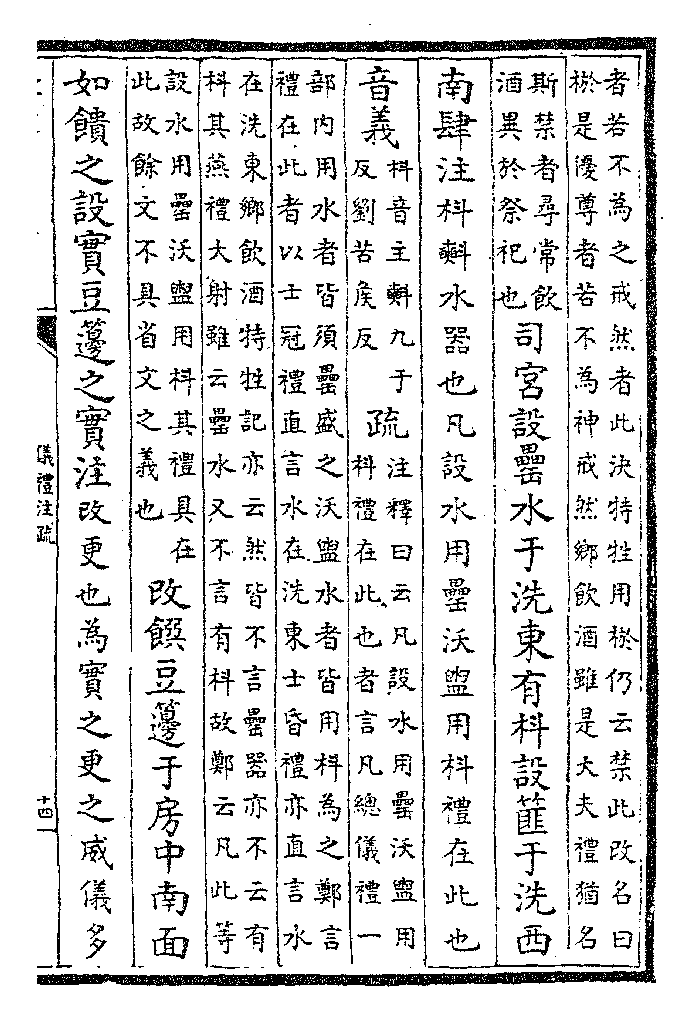 者若不為之戒然者此決特牲用棜仍云禁此改名曰
棜是優尊者若不為神戒然鄉飲酒雖是大夫禮猶名
斯禁者尋常飲
酒異於祭祀也
司宮設罍水于洗東有枓設篚于洗西
南肆注枓㪺水器也凡設水用罍沃盥用枓禮在此也
音義
枓音主㪺九于
反劉苦矦反
疏
注釋曰云凡設水用罍沃盥用
枓禮在此也者言凡總儀禮一
部内用水者皆須罍盛之沃盥水者皆用枓為之鄭言
禮在此者以士冠禮直言水在洗東士昏禮亦直言水
在洗東鄉飲酒特牲記亦云然皆不言罍器亦不云有
枓其燕禮大射雖云罍水又不言有枓故鄭云凡此等
設水用罍沃盥用枓其禮具在
此故餘文不具省文之義也
改饌豆籩于房中南面
如饋之設實豆籩之實注改更也為實之更之威儀多
儀禮注疏
十四